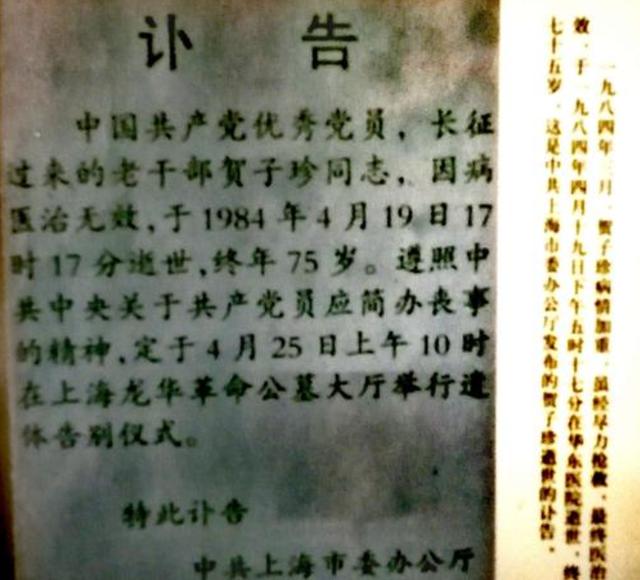 讣告
中国共产党优秀党员，长征
过来的老干部贺子珍同志，因病
医治无效，于1984年4月19日17
时17分逝世，终年75岁。遵照中
共中央关于共产党员应简办丧事
的精神，定于4月25日上午10时
在上海龙华革命公墓大厅举行遗
体告别仪式。
特此讣告
中共上海市委办公厅
一九八四年三月，贺子珍病情加重，虽经尽力抢救，最终医治
效，于一九八四年四月十九日下午五时十七分在华东医院逝世，终
七十五岁。这是中共上海市委办公厅发布的贺子珍逝世的讣告。